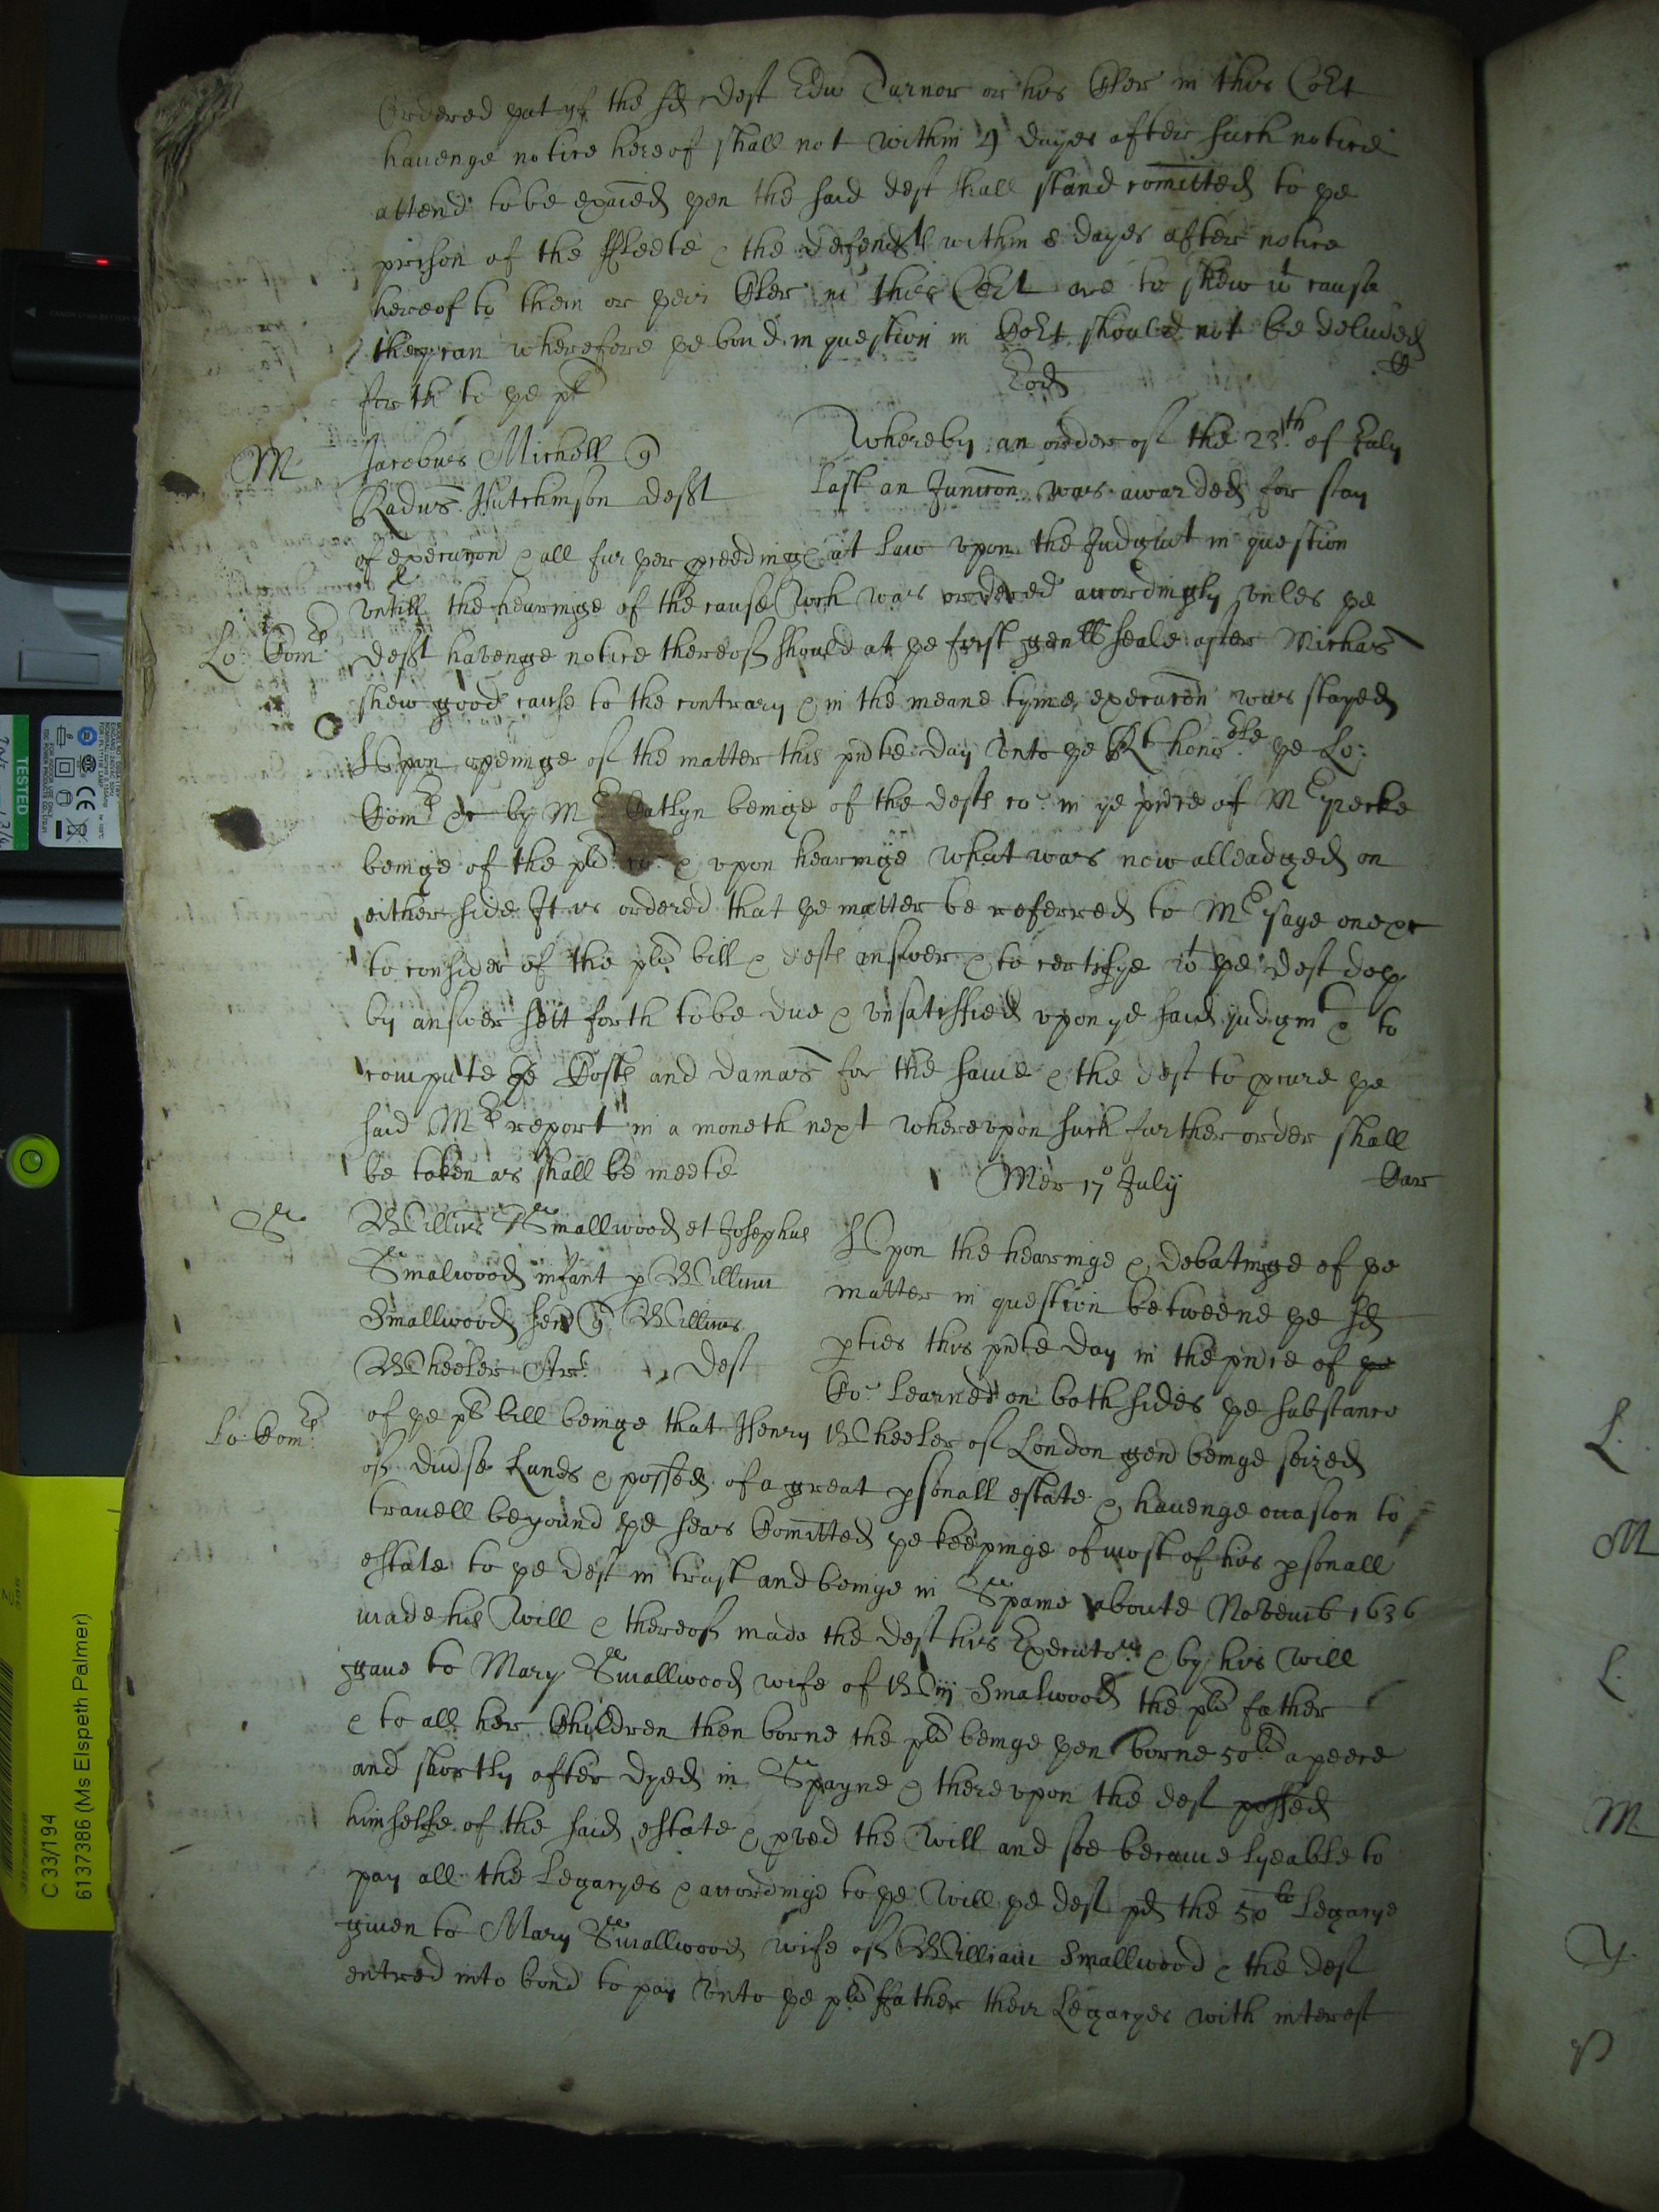 Ordered yat yf the sd deft Edw Turnor or his Cler in this Co:rt
hauenge notice hereof shall not within 4 dayes after such notice
attend to be exaīed yen the said deft shall stand com̄itted to ye
prison of the ffleete & the defendts within 8 dayes after notice
hereof to them or yeir Cler in this Co:rt are to shew wt cause
they can wherefore ye bond in question in Co:rt should not be deliuered
forth to ye plt
Eod
M
Jacobus Michell q
Radus Hutchinson defft
Whereby an order of the 23th of July
last an Junccon was awarded for stay
of execucon & all furyer pceedinge at law vpon the Judgmt in question
vntill the hearinge of the cause wch was ordered accordingly vnles ye
Lo: Comrs
defft havenge notice thereof should at ye first genll seale after Michas
shew good cause to the contrary & in the meane tyme execucon was stayed
Vpon openinge of the matter this pnte day vnto ye Rt honoble ye Lo:
Comrs &c by Mr Catlyn beinge of the defts co: in ye pnce of Mr Pecke
beinge of the plts co: & vpon hearinge what was now alleadged on
either side It is ordered that ye matter be referred to Mr Page one &c
to consider of the plts bill & defts answer & to certifye wt ye deft doey
by answer sett forth to be due & vnsatisffied vpon ye said judgmt & to
compute ye Costs and damas for the same & the deft to pcure ye
said Mrs report in a moneth next wherevpon such further order shall
be taken as shall be meete
Mer 17o July
Car
S
Willus Smallwood et Josephus
Smalwood infant p Willum
Smallwood q Willus
Wheeler Ar: deft
Vpon the hearinge & debatinge of ye
matter in question betweene ye sd
pties this pnte day in the pnce of ye
Co: learned on both sides ye substance
Lo: Comrs
of ye plts bill beinge that Henry Wheeler of London gen beinge seized
of diuse Lands & possed of a great psonall estate & hauenge occasion to
trauell beyound ye seas Com̄itted ye keepinge of most of his psonall
estate to ye deft in trust and beinge in Spaine aboute Novemb 1636
made his Will & thereof made the deft his Executor & by his Will
gaue to Mary Smallwood wife of Wm Smalwood the plts father
& to all her Children then borne the plts beinge yen borne 50li a peece
and shortly after dyed in Spayne & therevpon the deft possed
himselfe of the said estate & pved the Will and soe became lyeable to
pay all the Legacyes & accordinge to ye Will ye deft pd the 50li Legacye
giuen to Mary Smallwood wife of William Smallwood & the deft
entred into bond to pay vnto ye plts ffather their Legacyes with interest
L.
M
L.
M
Y.
P
C 33/194
6137386 (Ms Elspeth Palmer)
TESTED